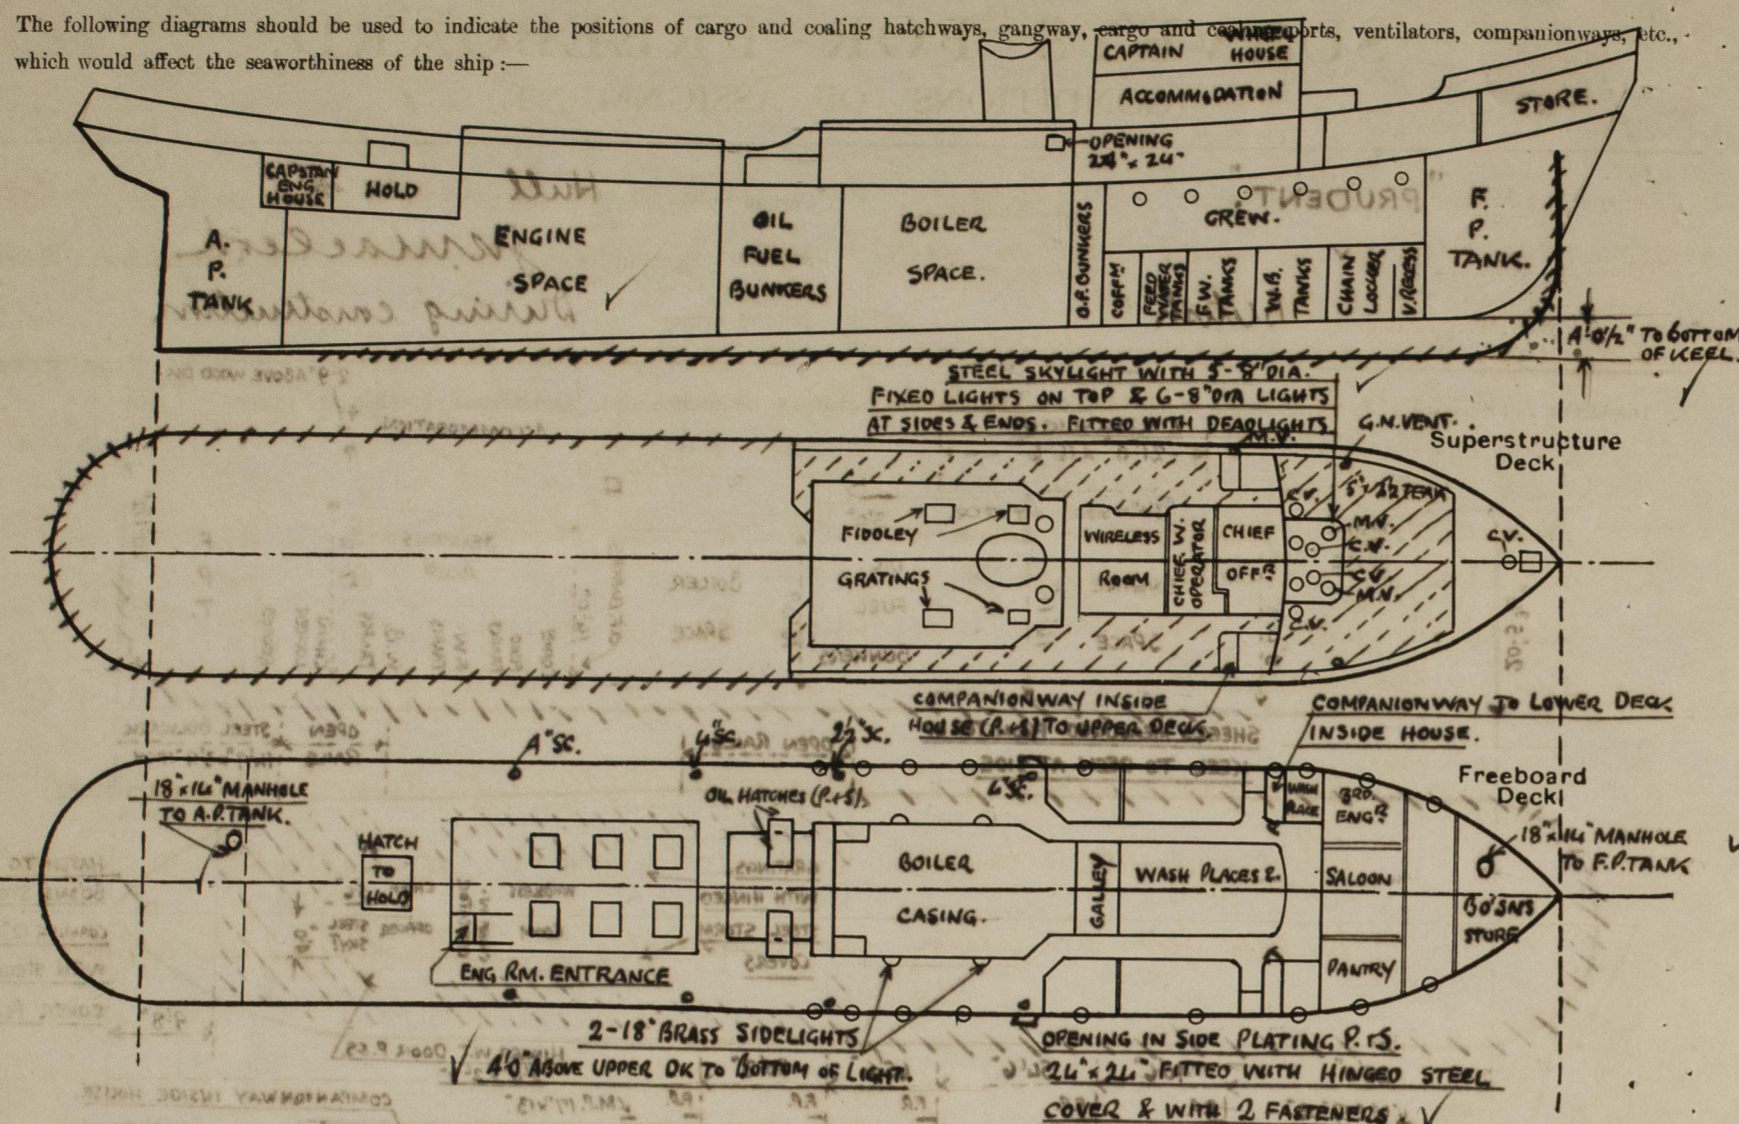 The following diagrams should be used to indicate the positions of cargo and coaling hatchways, gangway, cargo and coaling ports, ventilators, companionways, etc.,
which would affect the seaworthiness of the ship :—
CAPTAIN
WHEEL
HOUSE
ACCOMMODATION
STORE.
OPENING
24" x 24"
CAPSTAN
ENG
HOUSE
HOLD
A.
P.
TANK
ENGINE
SPACE
OIL
FUEL
BUNKERS
BOILER
SPACE.
O.F. BUNKERS
CREW.
COFFM
FEED
WATER
TANKS
F.W.
TANKS
W.B.
TANKS
CHAIN
LOCKER
V. RECESS
F.
P.
TANK.
4'-0½" TO BOTTOM
OF KEEL.
STEEL SKYLIGHT WITH 5-8" DIA.
FIXED LIGHTS ON TOP & 6-8" DIA LIGHTS
AT SIDES & ENDS. FITTED WITH DEADLIGHTS
M.V.
G.N. VENT.
Superstructure
Deck
FIDDLEY
GRATINGS
WIRELESS
ROOM
CHIEF W.
OPERATOR
CHIEF
OFFR
C.V.
TEAK
M.V.
C.V.
C.V.
M.V.
C.V.
C.V.
COMPANIONWAY INSIDE
HOUSE (P.+S) TO UPPER DECK.
COMPANIONWAY TO LOWER DECK
INSIDE HOUSE.
4" SC.
4" SC.
2½" SC.
4" SC.
Freeboard
Deck
18"x14" MANHOLE
TO A.P. TANK.
HATCH
TO
HOLD
OIL HATCHES (P.+S).
BOILER
CASING.
GALLEY
WASH PLACES &
WASH
PLACE
3RD
ENGR
SALOON
PANTRY
BO'SNS
STORE
18"x14" MANHOLE
TO F.P. TANK
ENG RM. ENTRANCE
2-18" BRASS SIDELIGHTS
4'0" ABOVE UPPER DK TO BOTTOM OF LIGHT.
OPENING IN SIDE PLATING P.+S.
24" x 24" FITTED WITH HINGED STEEL
COVER & WITH 2 FASTENERS.